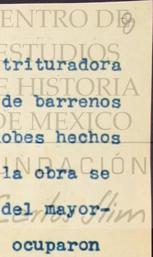 trituradora
de barrenos
obes hechos
la obra se
del mayor-
ocuparon
ENTRO DE
ESTUDIOS
E HISTORIA
DE MEXICO
FUNDACIÓN
Carlos Slim